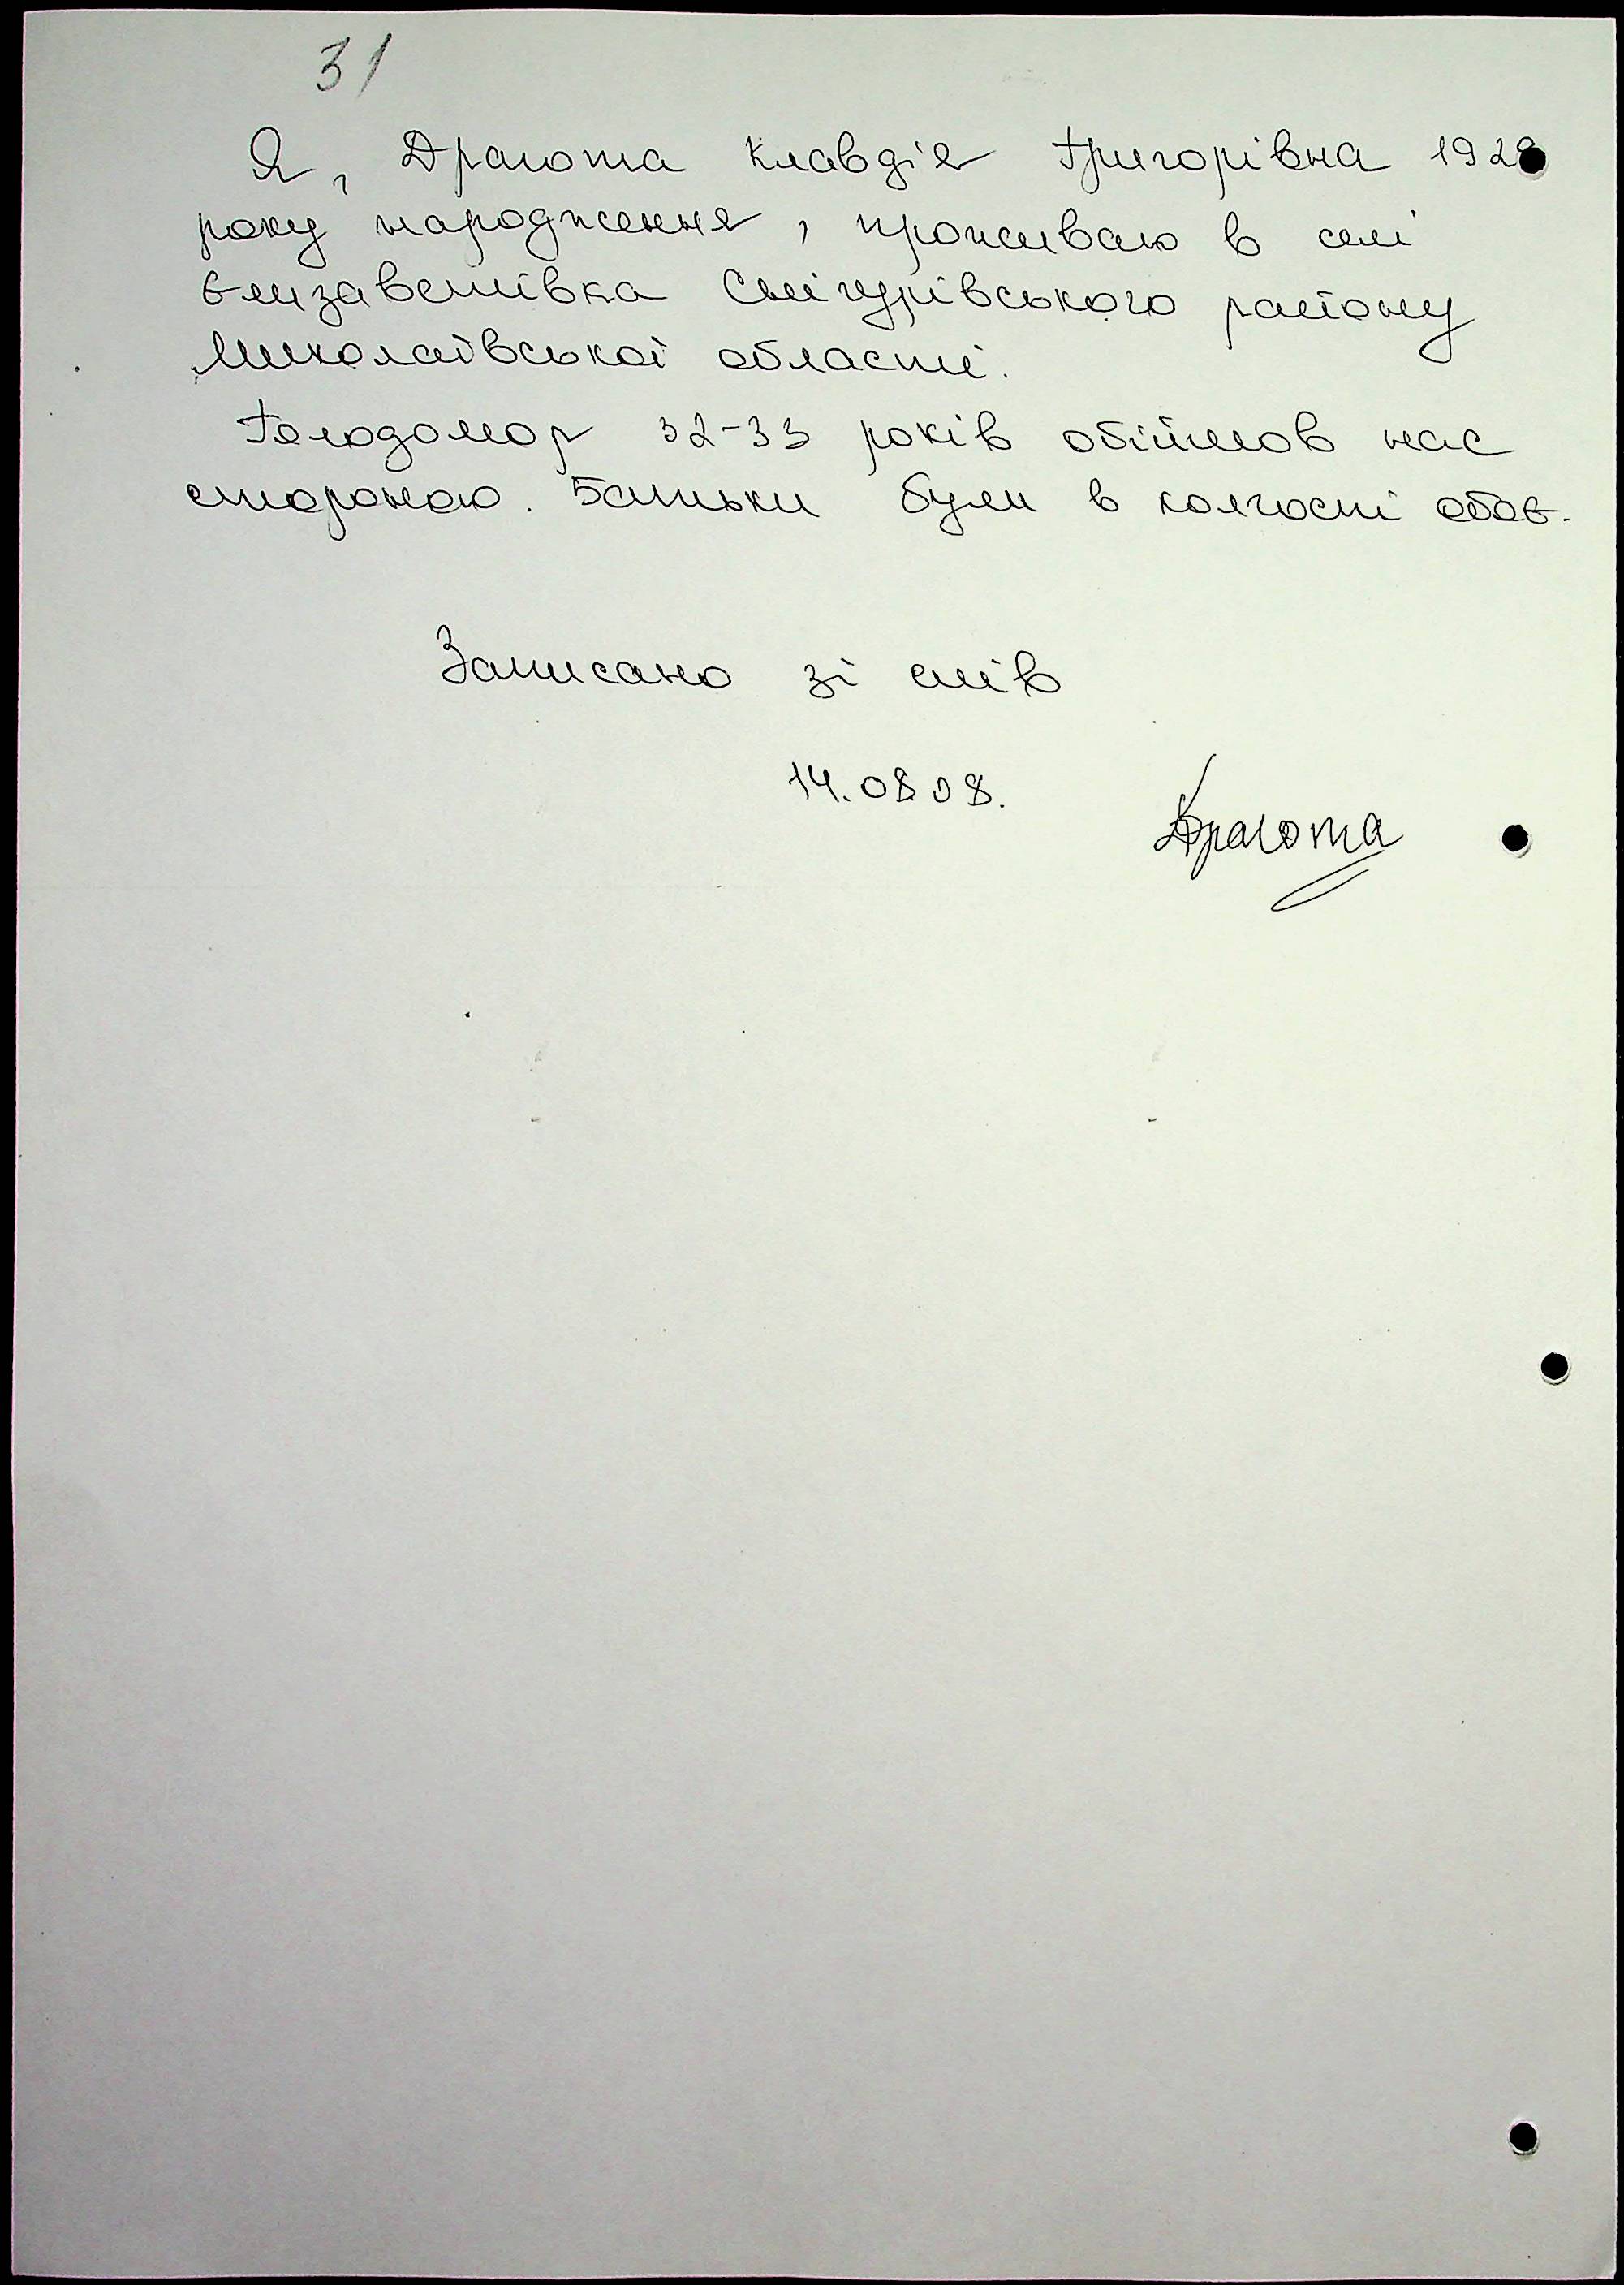 31
Я, Драгота Клавдія Григорівна 1928
року народження, проживаю в селі
Єлизаветівка Снігурівського району
Миколаївської області.
Голодомор 32-33 років обійшов нас
стороною. Батьки були в колгоспі обоє.
Записано зі слів
14.08 08.
Драгота